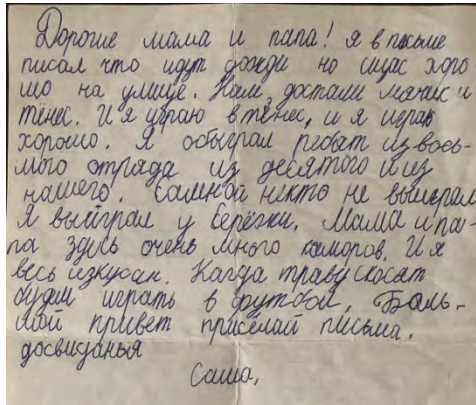 Дорогие мама и папа! Я в писме
писал что идут дожди но щас хоро-
шо на улице. Нам, достали мячик и
тенес. И я играю в тенес, и я играю
хорошо. Я обыграл ребят из вось-
мого отряда из десятого и из
нашего. Самной некто не выиграл
Я выйграл у Серёжки. Мама и па-
па здесь очень много каморов. И я
весь изкусан. Кагда траву скосят
будим играть в футбой, Боль-
шой привет присылай письма.
досвиданья
Саша,